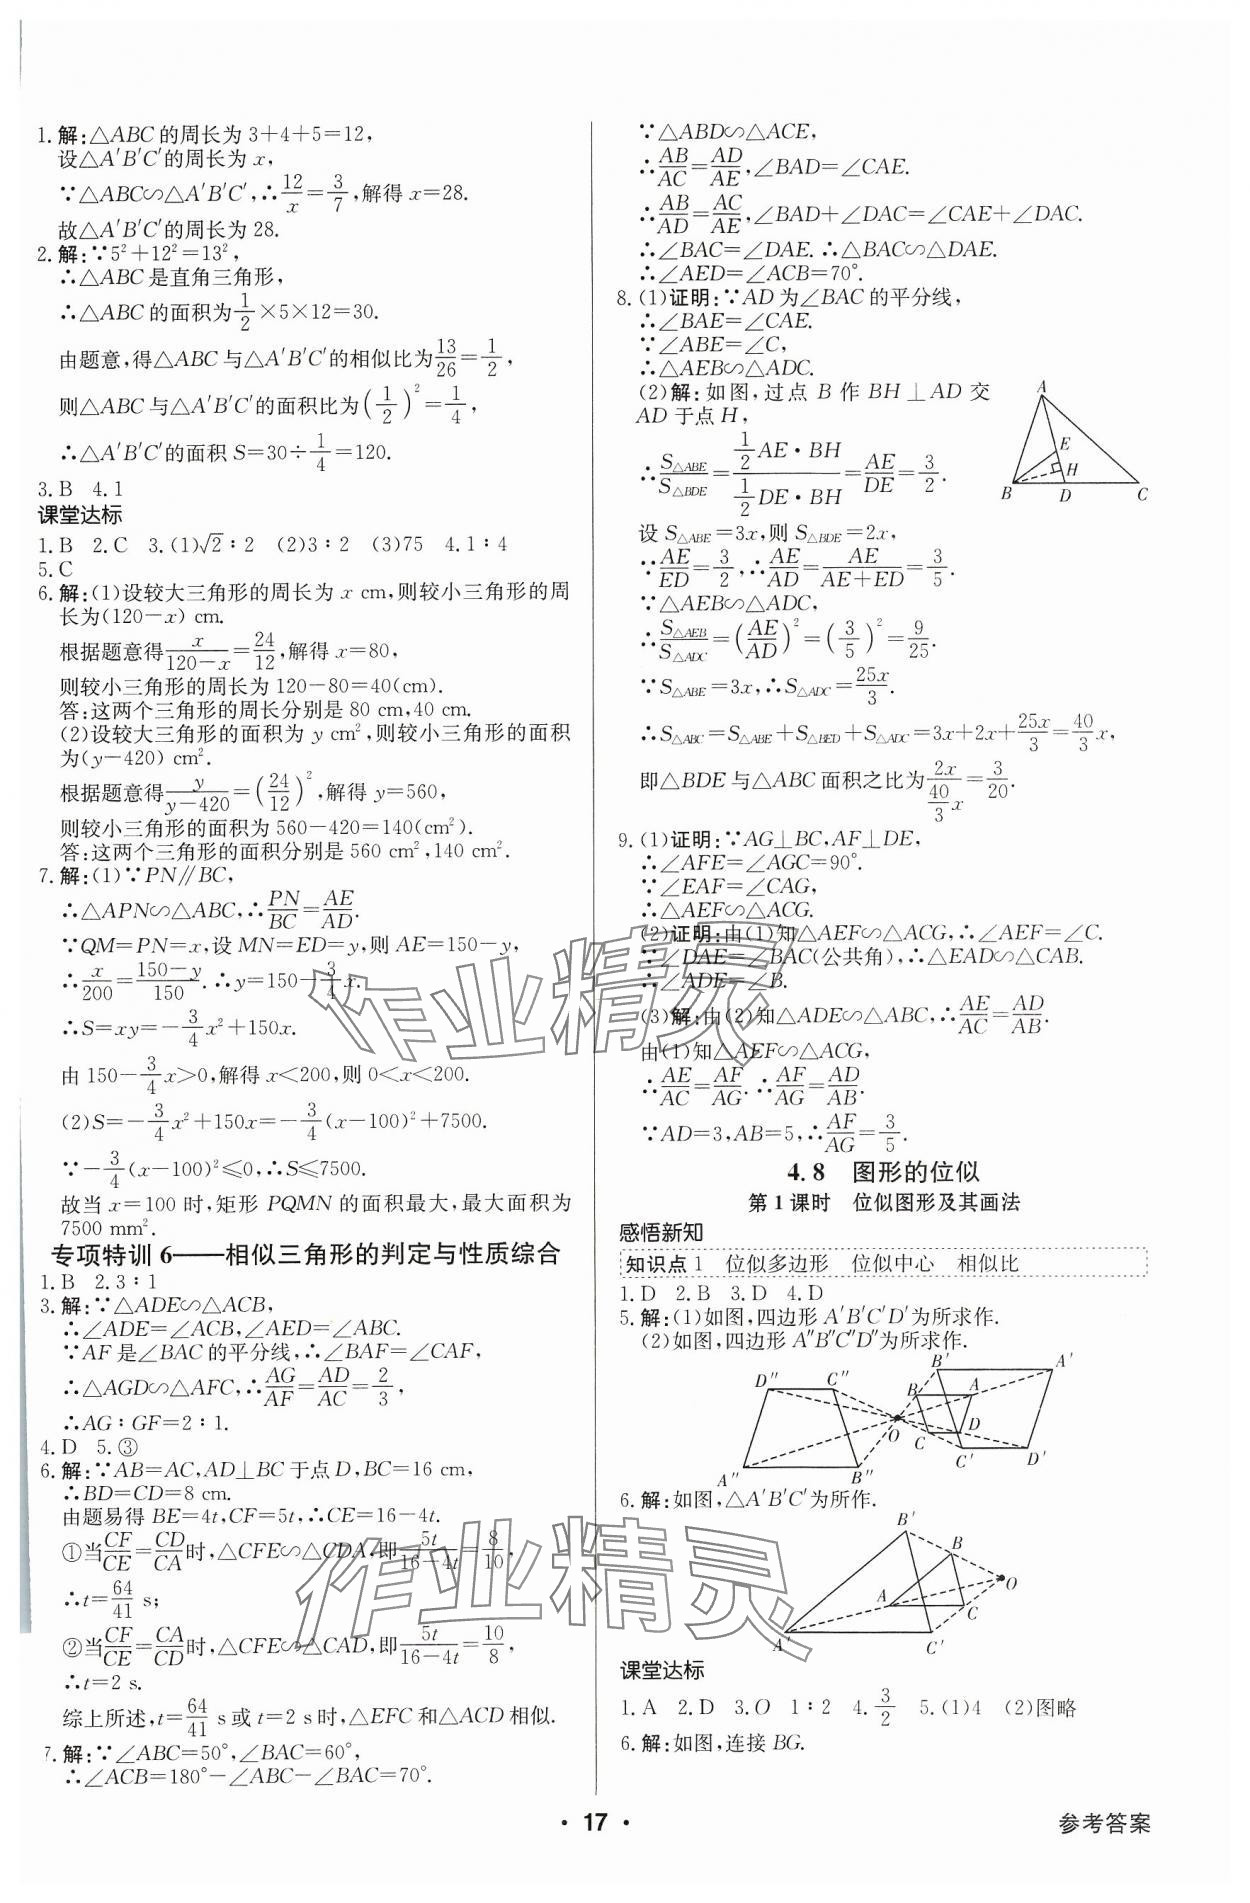 1.解:△ABC的周长为3+4+5=12,
设△A′B′C′的周长为x,
∵△ABC∽△A′B′C′,∴12/x=3/7,解得x=28.
故△A′B′C′的周长为28.
2.解:∵5²+12²=13²,
∴△ABC是直角三角形,
∴△ABC的面积为1/2×5×12=30.
由题意,得△ABC与△A′B′C′的相似比为13/26=1/2,
则△ABC与△A′B′C′的面积比为(1/2)²=1/4,
∴△A′B′C′的面积S=30÷1/4=120.
3.B 4.1
课堂达标
1.B 2.C 3.(1)√2∶2 (2)3∶2 (3)75 4.1∶4
5.C
6.解:(1)设较大三角形的周长为x cm,则较小三角形的周
长为(120-x) cm.
根据题意得x/(120-x)=24/12,解得x=80,
则较小三角形的周长为120-80=40(cm).
答:这两个三角形的周长分别是80 cm,40 cm.
(2)设较大三角形的面积为y cm²,则较小三角形的面积
为(y-420) cm².
根据题意得y/(y-420)=(24/12)²,解得y=560,
则较小三角形的面积为560-420=140(cm²).
答:这两个三角形的面积分别是560 cm²,140 cm².
7.解:(1)∵PN∥BC,
∴△APN∽△ABC,∴PN/BC=AE/AD.
∵QM=PN=x,设MN=ED=y,则AE=150-y,
∴x/200=(150-y)/150.∴y=150-3/4x.
∴S=xy=-3/4x²+150x.
由150-3/4x>0,解得x<200,则0<x<200.
(2)S=-3/4x²+150x=-3/4(x-100)²+7500.
∵-3/4(x-100)²≤0,∴S≤7500.
故当x=100时,矩形PQMN的面积最大,最大面积为
7500 mm².
专项特训6——相似三角形的判定与性质综合
1.B 2.3∶1
3.解:∵△ADE∽△ACB,
∴∠ADE=∠ACB,∠AED=∠ABC.
∵AF是∠BAC的平分线,∴∠BAF=∠CAF,
∴△AGD∽△AFC,∴AG/AF=AD/AC=2/3,
∴AG∶GF=2∶1.
4.D 5.③
6.解:∵AB=AC,AD⊥BC于点D,BC=16 cm,
∴BD=CD=8 cm.
由题易得BE=4t,CF=5t,∴CE=16-4t.
①当CF/CE=CD/CA时,△CFE∽△CDA,即5t/(16-4t)=8/10,
∴t=64/41 s;
②当CF/CE=CA/CD时,△CFE∽△CAD,即5t/(16-4t)=10/8,
∴t=2 s.
综上所述,t=64/41 s或t=2 s时,△EFC和△ACD相似.
7.解:∵∠ABC=50°,∠BAC=60°,
∴∠ACB=180°-∠ABC-∠BAC=70°.
∵△ABD∽△ACE,
∴AB/AC=AD/AE,∠BAD=∠CAE.
∴AB/AD=AC/AE,∠BAD+∠DAC=∠CAE+∠DAC.
∴∠BAC=∠DAE.∴△BAC∽△DAE.
∴∠AED=∠ACB=70°.
8.(1)证明:∵AD为∠BAC的平分线,
∴∠BAE=∠CAE.
∵∠ABE=∠C,
∴△AEB∽△ADC.
(2)解:如图,过点B作BH⊥AD交
AD于点H,
∴S△ABE/S△BDE=(1/2AE·BH)/(1/2DE·BH)=AE/DE=3/2.
A
E
H
B D C
设S△ABE=3x,则S△BDE=2x,
∵AE/ED=3/2,∴AE/AD=AE/(AE+ED)=3/5.
∵△AEB∽△ADC,
∴S△AEB/S△ADC=(AE/AD)²=(3/5)²=9/25.
∵S△ABE=3x,∴S△ADC=25x/3.
∴S△ABC=S△ABE+S△BED+S△ADC=3x+2x+25x/3=40/3x,
即△BDE与△ABC面积之比为2x/(40/3x)=3/20.
9.(1)证明:∵AG⊥BC,AF⊥DE,
∴∠AFE=∠AGC=90°.
∵∠EAF=∠CAG,
∴△AEF∽△ACG.
(2)证明:由(1)知△AEF∽△ACG,∴∠AEF=∠C.
∵∠DAE=∠BAC(公共角),∴△EAD∽△CAB.
∴∠ADE=∠B.
(3)解:由(2)知△ADE∽△ABC,∴AE/AC=AD/AB.
由(1)知△AEF∽△ACG,
∴AE/AC=AF/AG.∴AF/AG=AD/AB.
∵AD=3,AB=5,∴AF/AG=3/5.
4.8 图形的位似
第1课时 位似图形及其画法
感悟新知
知识点1 位似多边形 位似中心 相似比
1.D 2.B 3.D 4.D
5.解:(1)如图,四边形A′B′C′D′为所求作.
(2)如图,四边形A″B″C″D″为所求作.
B′ A′
D″ C″ B A
O C D
C′ D′
A″ B″
6.解:如图,△A′B′C′为所作.
B′
B
O
A C
A′ C′
课堂达标
1.A 2.D 3.O 1∶2 4.3/2 5.(1)4 (2)图略
6.解:如图,连接BG.
作业精灵
作业精灵
• 17 •
参考答案